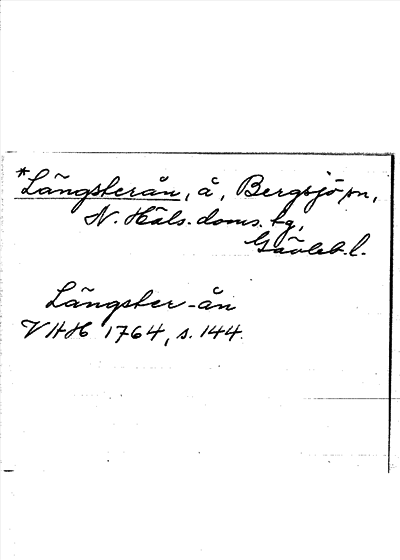 *Långsterån, å, Bergsjö sn,
N. Häls. doms. tg,
Gävleb. l.
Långster-ån
VHH 1764, s. 144.